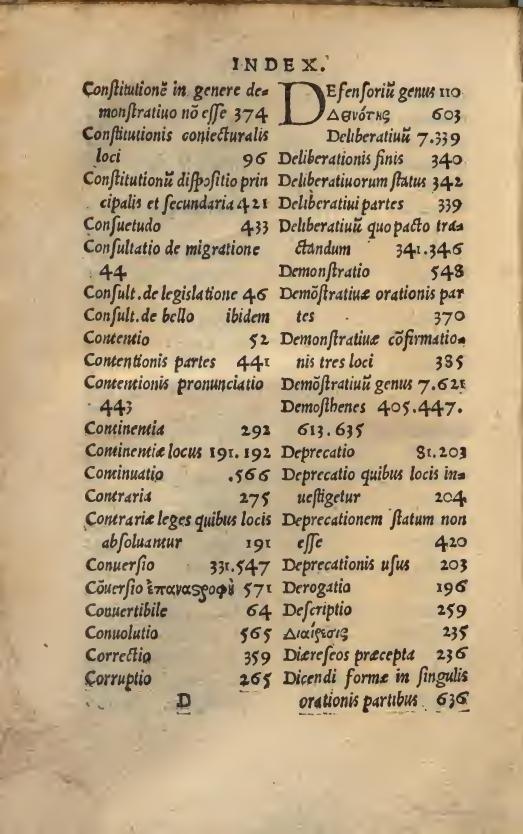 INDEX.
Conſtitutionē in genere de=
monſtratiuo nō eſſe 374
Conſtitutionis coniecturalis
loci 96
Conſtitutionū diſpoſitio prin
cipalis et ſecundaria 421
Conſuetudo 433
Conſultatio de migratione
44
Conſult. de legislatione 46
Conſult. de bello ibidem
Contentio 52
Contentionis partes 441
Contentionis pronunciatio
443
Continentia 292
Continentiæ locus 191.192
Continuatio .566
Contraria 275
Contrariæ leges quibus locis
abſoluantur 191
Conuerſio 331.547
Cōuerſio ἐπαναςροφὴ 571
Conuertibile 64
Conuolutio 565
Correctio 359
Corruptio 265
D
DEfenſoriū genus 110
Δεινότης 603
Deliberatiuū 7.339
Deliberationis finis 340
Deliberatiuorum ſtatus 342
Deliberatiui partes 339
Deliberatiuū quo pacto tra=
ctandum 341.346
Demonſtratio 548
Demōſtratiuæ orationis par
tes 370
Demonſtratiuæ cōfirmatio=
nis tres loci 385
Demōſtratiuū genus 7.621
Demoſthenes 405.447.
613.635
Deprecatio 81.203
Deprecatio quibus locis in=
ueſtigetur 204
Deprecationem ſtatum non
eſſe 420
Deprecationis uſus 203
Derogatio 196
Deſcriptio 259
Διαίρεσις 235
Diæreſeos præcepta 236
Dicendi formæ in ſingulis
orationis partibus 636